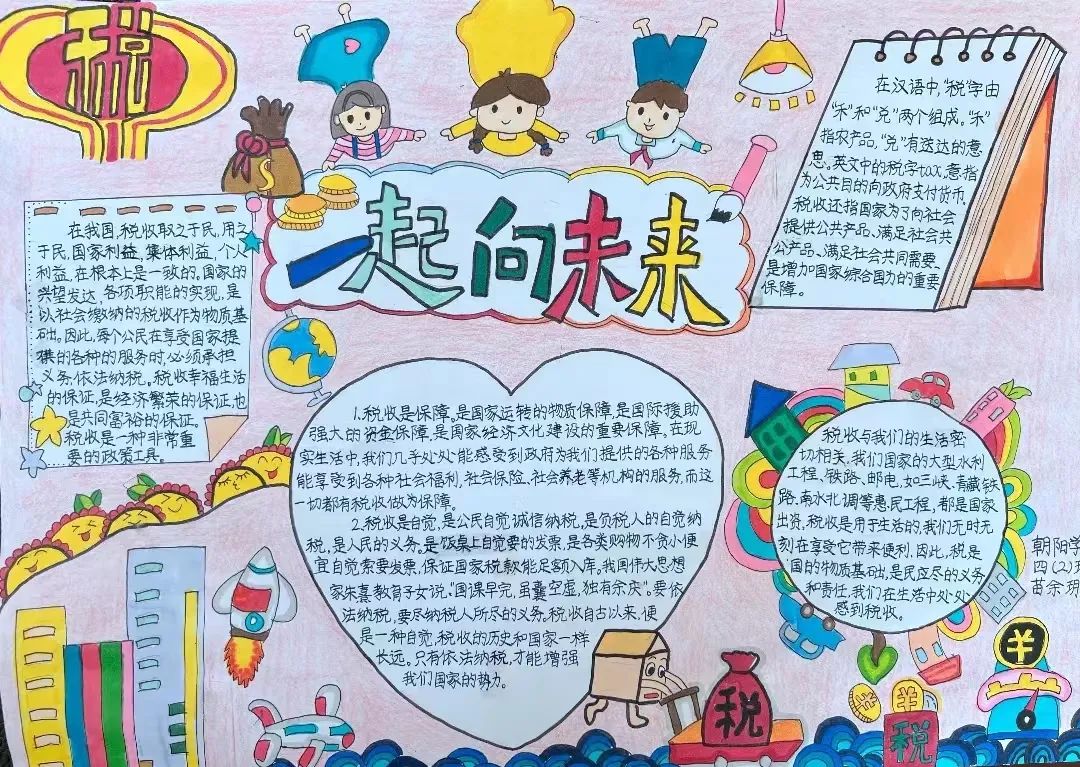 税
一起向未来
在我国,税收取之于民,用之
于民,国家利益、集体利益、个人
利益,在根本上是一致的。国家的
兴望发达,各项职能的实现,是
以社会缴纳的税收作为物质基
础。因此,每个公民在享受国家提
供的各种的服务时,必须承担
义务,依法纳税。税收幸福生活
的保证,是经济繁荣的保证,也
是共同富裕的保证。
税收是一种非常重
要的政策工具。
在汉语中,“税”字由
“禾”和“兑”两个组成。“禾”
指农产品,“兑”有送达的意
思。英文中的税字tax,意指
为公共目的向政府支付货币。
税收还指国家为了向社会
提供公共产品、满足社会共
公产品、满足社会共同需要,
是增加国家综合国力的重要
保障。
1.税收是保障,是国家运转的物质保障,是国际援助
强大的资金保障,是国家经济文化建设的重要保障。在现
实生活中,我们几乎处处能感受到政府为我们提供的各种服务
能享受到各种社会福利,社会保险、社会养老等机构的服务,而这
一切都有税收做为保障。
2.税收是自觉,是公民自觉诚信纳税,是负税人的自觉纳
税,是人民的义务。是饭桌上自觉要的发票,是各类购物不贪小便
宜自觉索要发票,保证国家税款能足额入库,我国伟大思想
家朱熹教育子女说:“国课早完,虽囊空虚,独有余庆”。要依
法纳税,要尽纳税人所尽的义务。税收自古以来,便
是一种自觉,税收的历史和国家一样
长远。只有依法纳税,才能增强
我们国家的势力。
税收与我们的生活密
切相关,我们国家的大型水利
工程、铁路、邮电,如三峡、青藏铁
路、南水北调等惠民工程,都是国家
出资,税收是用于生活的,我们无时无
刻在享受它带来便利,因此,税是
国的物质基础,是民应尽的义务
和责任,我们在生活中处处
感到税收。
朝阳学
四(2)班
苗余
税
税